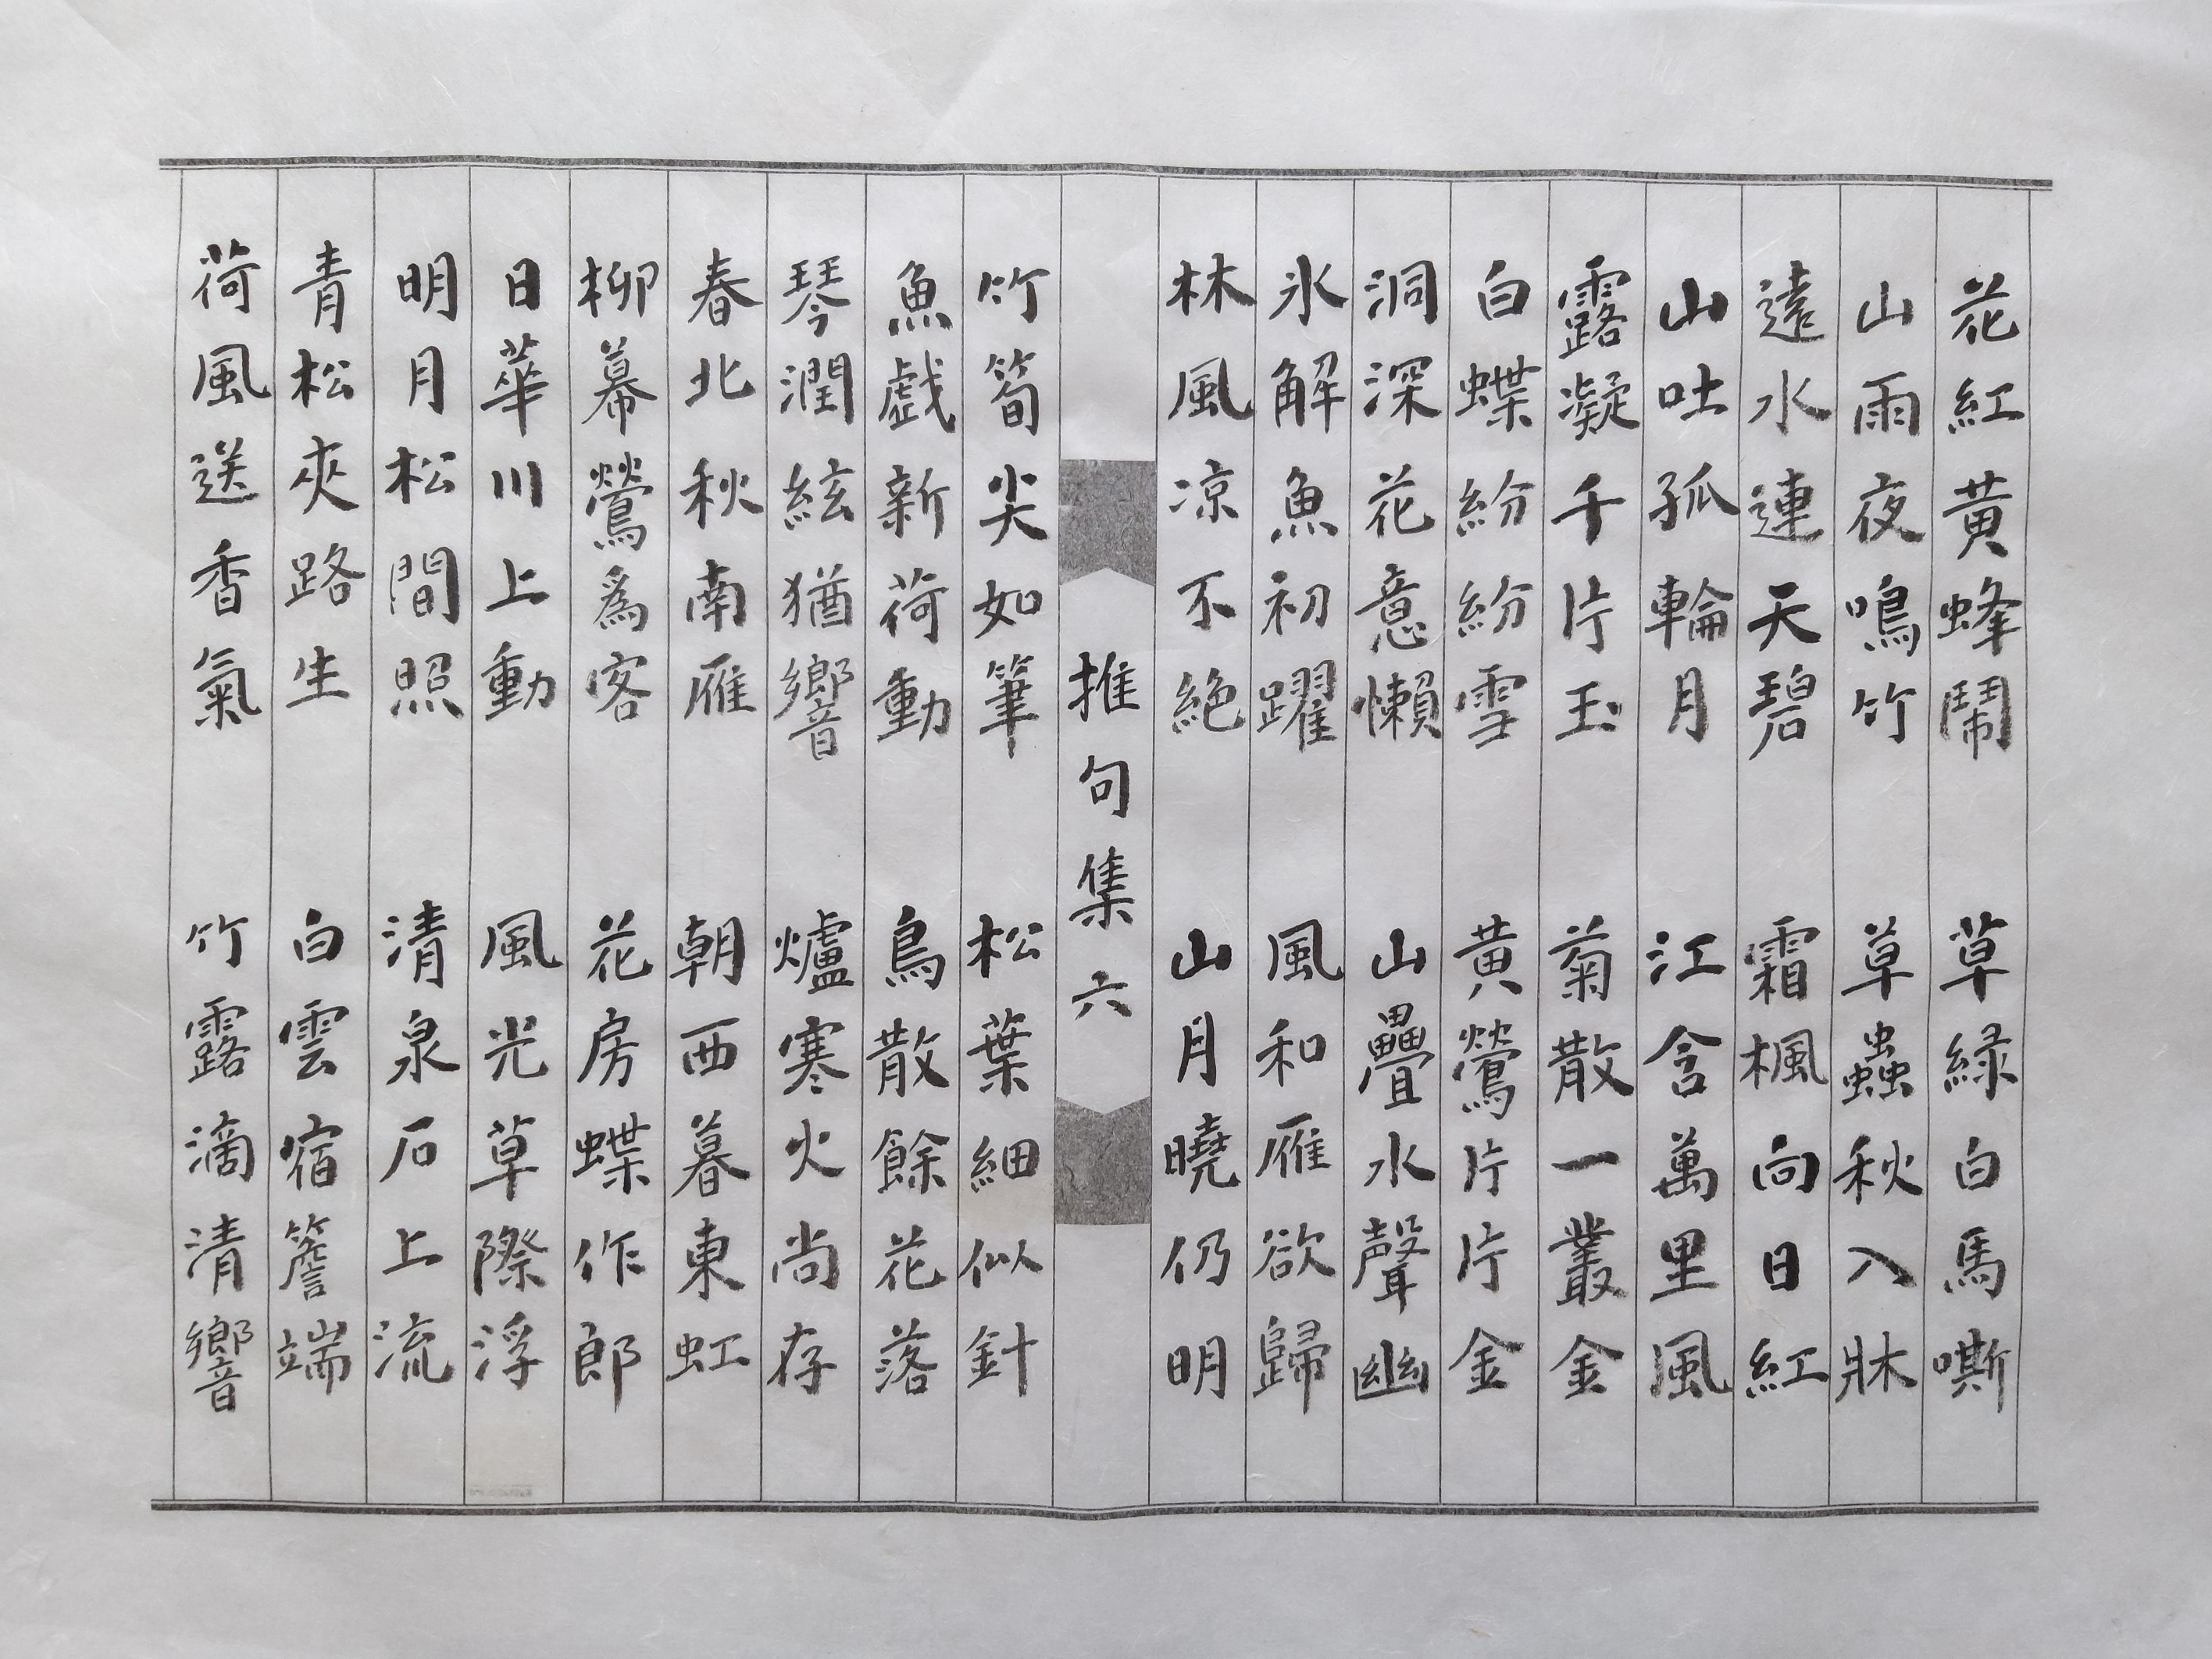 花紅黃蜂鬧 草緑白馬嘶
山雨夜鳴竹 草蟲秋入牀
遠水連天碧 霜楓向日紅
山吐孤輪月 江含萬里風
露凝千片玉 菊散一叢金
白蝶紛紛雪 黃鶯片片金
洞深花意懶 山疊水聲幽
氷解魚初躍 風和雁欲歸
林風凉不絶 山月曉仍明
推句集六
竹筍尖如筆 松葉細似針
魚戲新荷動 鳥散餘花落
琴潤絃猶響 爐寒火尚存
春北秋南雁 朝西暮東虹
柳幕鶯爲客 花房蝶作郎
日華川上動 風光草際浮
明月松間照 清泉石上流
青松夾路生 白雲宿簷端
荷風送香氣 竹露滴清響